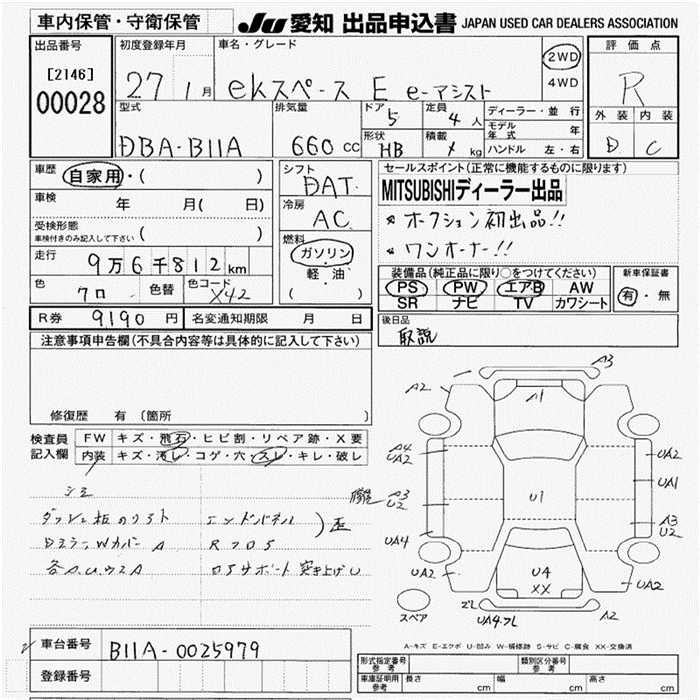 車内保管・守衛保管
JU 愛知 出品申込書 JAPAN USED CAR DEALERS ASSOCIATION
出品番号
[2146]
00028
初度登録年月
27 1月
車名・グレード
ekスペース E e-アシスト
2WD
4WD
評価点
R
外装 内装
D C
型式
DBA-B11A
排気量
660 cc
ドア
5
定員
4人
形状
HB
積載
kg
ディーラー・並行
モデル年式 年
ハンドル 左・右
車歴
自家用・( )
車検 年 月( 日)
受検形態
車検付きのみ記入して下さい ( )
走行
9万6千812km
色
クロ
色替
色コード
X42
シフト
DAT
冷房
AC
燃料
ガソリン
軽油
( )
セールスポイント(正常に機能するものに限ります)
MITSUBISHIディーラー出品
オークション初出品!!
ワンオーナー!!
装備品(純正品に限り○をつけてください)
PS PW エアB AW
SR ナビ TV カワシート
新車保証書
有・無
R券 9190円
名変通知期限 月 日
後日品
取説
注意事項申告欄(不具合内容等は具体的に記入して下さい)
修復歴 有 (箇所 )
検査員記入欄
FW キズ・飛石・ヒビ割・リペア跡・X要
内装 キズ・汚レ・コゲ・穴・スレ・キレ・破レ
シミ
ダッシュ板のリフト
DミラーWカバー A
各A.U.ウスA
エンドパネル
RフロS
歪
ロSサポート突き上げU
A3
A2
A1
A4
UA2
修復
A3
U2
UA4
U1
UA2
UA1
A3
U2
UA2
U4
XX
UA2
UA4.フL
A2
スペア
A-キズ E-エクボ U-凹み W-補修跡 S-サビ C-腐食 XX-交換済
車台番号
B11A-0025979
登録番号
形式指定番号
参考
類別区分番号
参考
車庫証明用
参考
長さ cm
幅 cm
高さ cm